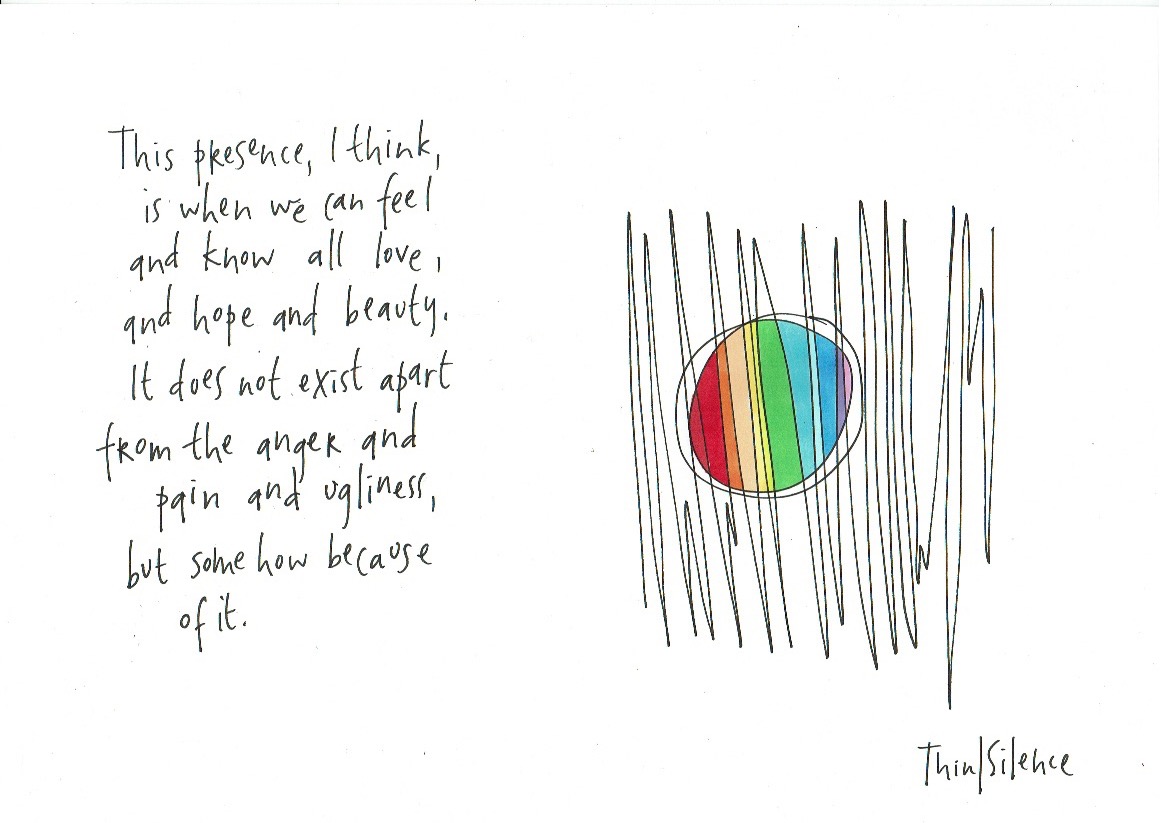 This presence, I think,
is when we can feel
and know all love,
and hope and beauty.
It does not exist apart
from the anger and
pain and ugliness,
but somehow because
of it.
Thin|Silence